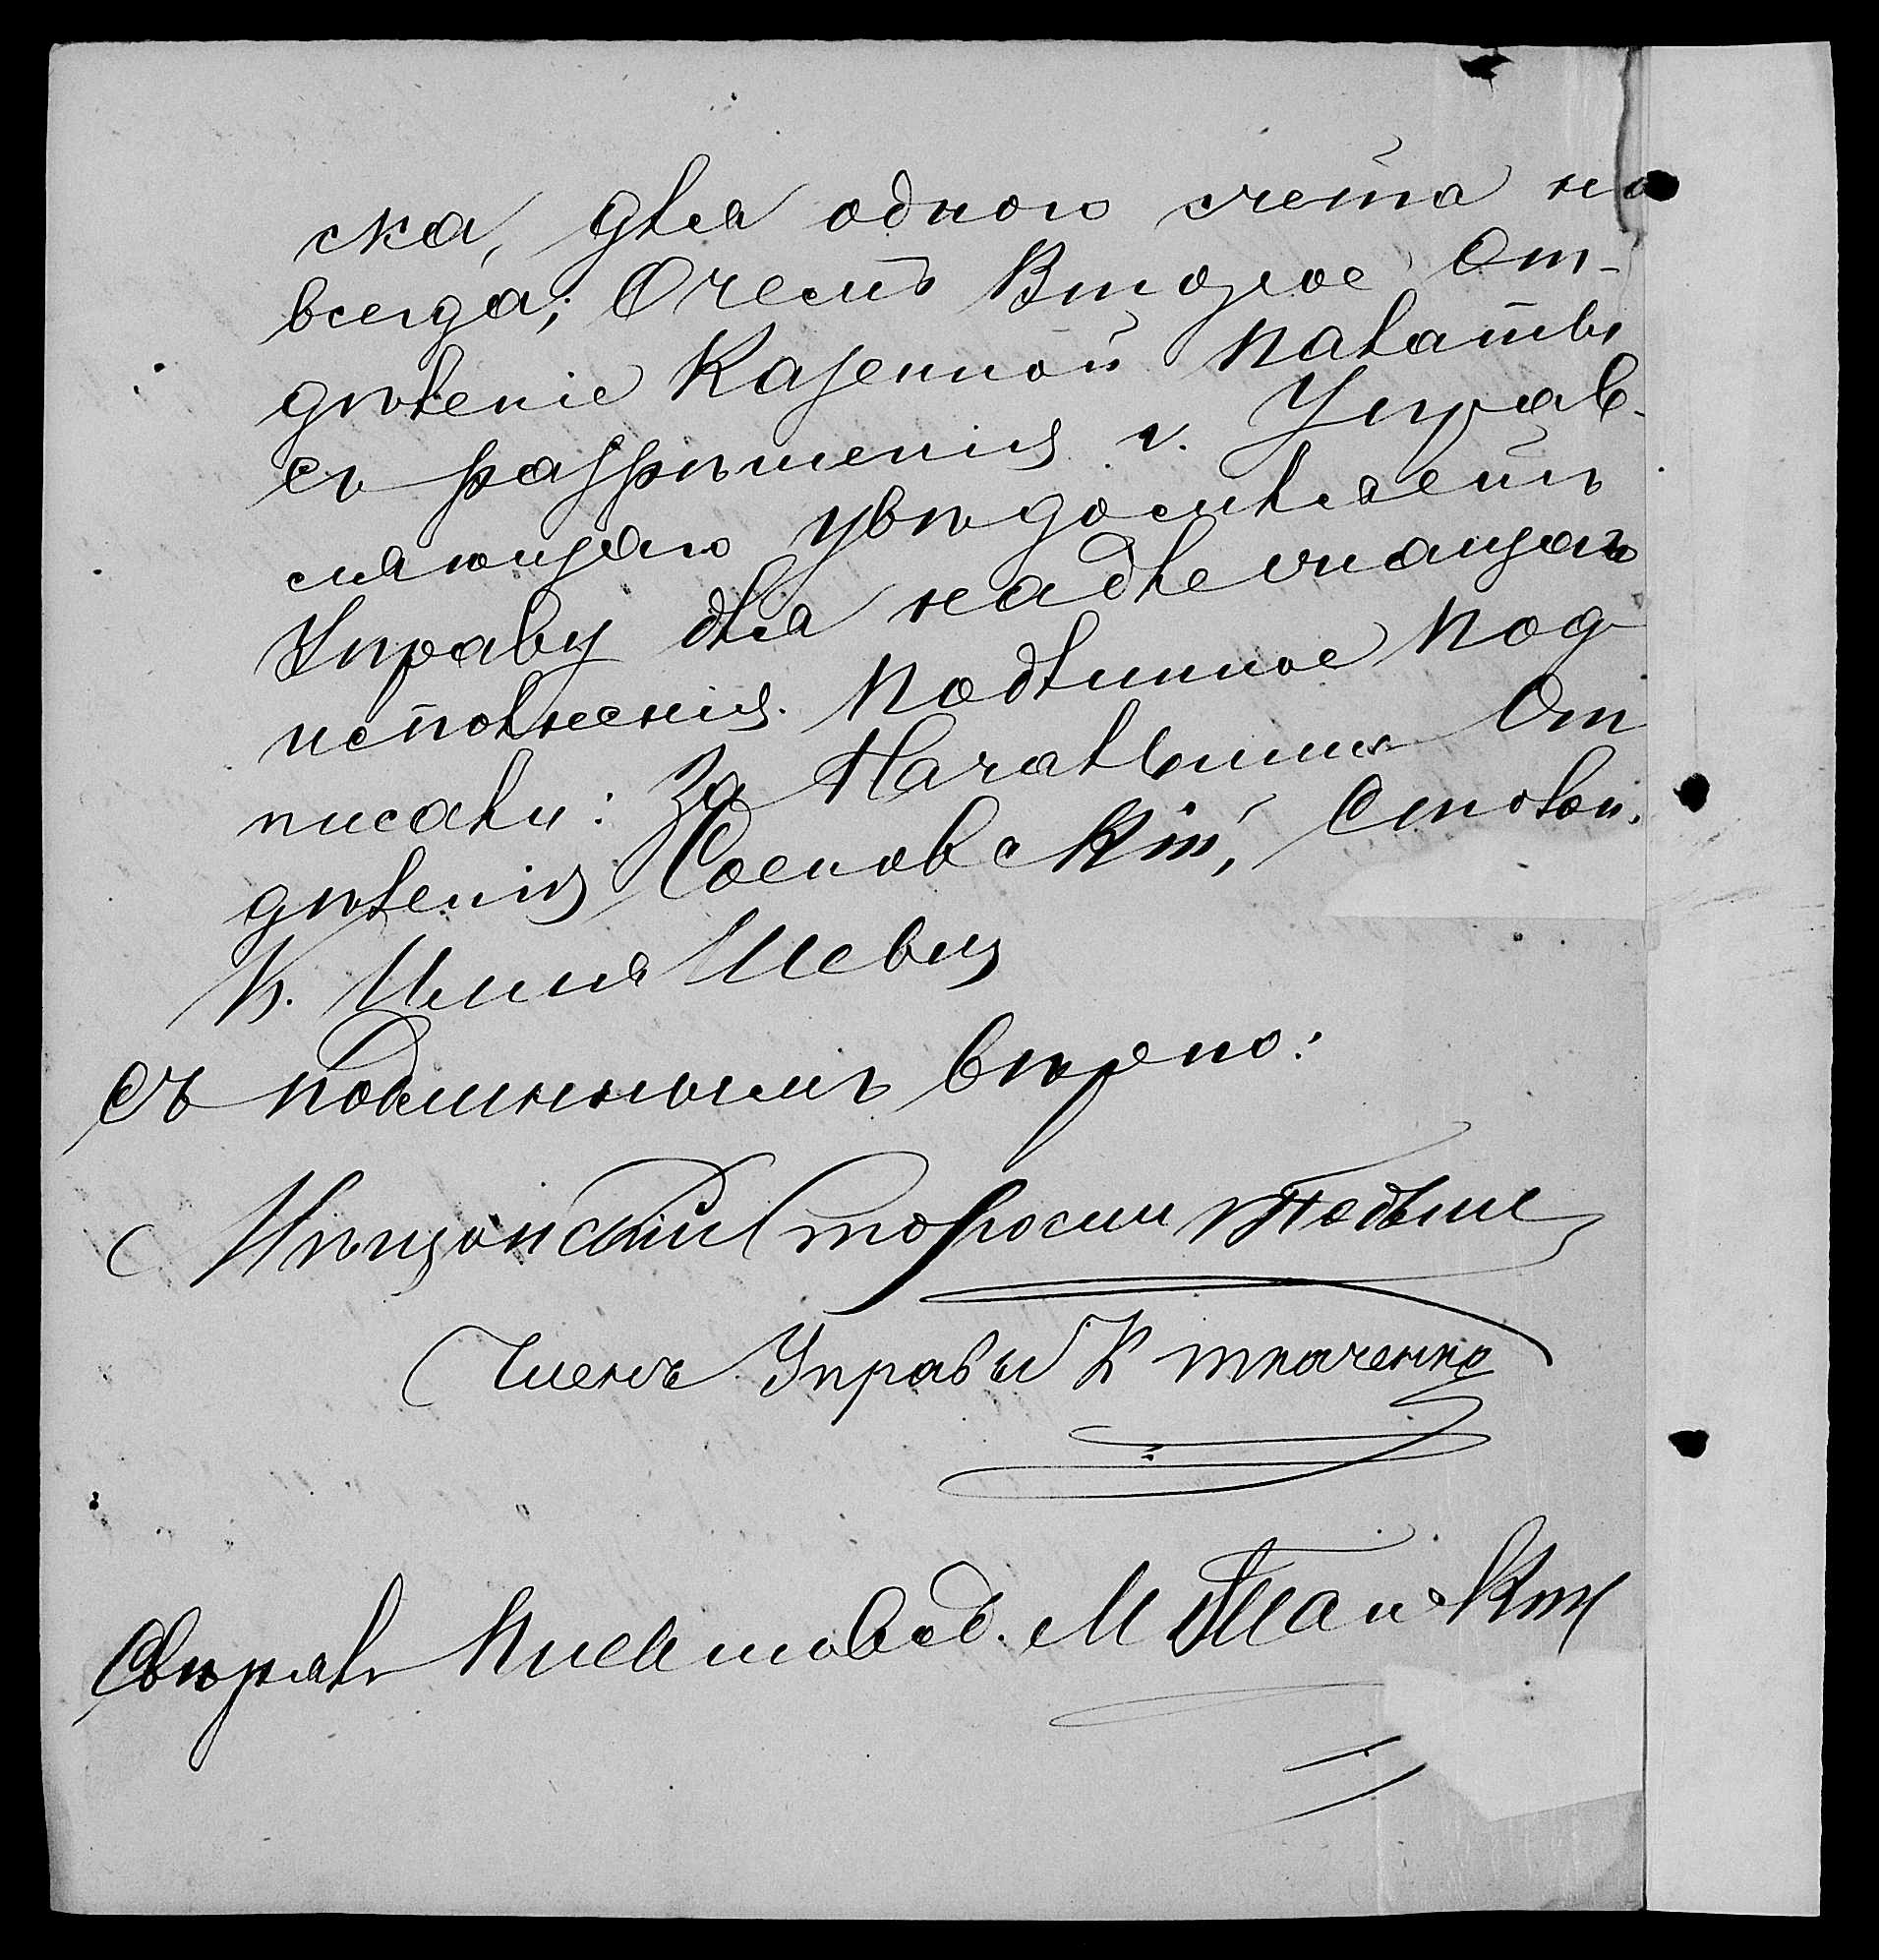 ска, для одного счета на
всегда; О чемъ Второе От-
дѣленіе Казенной Палаты
съ разрѣшенія г. Управ-
ляющаго увѣдомляетъ
Управу для надлежащаго
исполненія. Подлинное под-
писали: За Начальника От
дѣленія Сосновскій, Столон.
К.
Съ подлиннымъ вѣрно:
Мѣщанскій Староста
Членъ Управы К Ткаченко
Свѣрялъ Письмовод. М